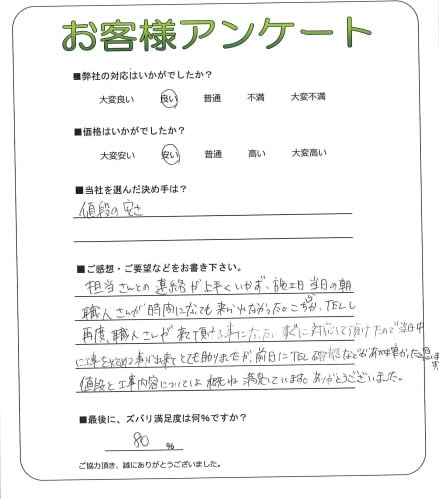 お客様アンケート
■弊社の対応はいかがでしたか？
大変良い 良い 普通 不満 大変不満
■価格はいかがでしたか？
大変安い 安い 普通 高い 大変高い
■当社を選んだ決め手は？
値段の安さ
■ご感想・ご要望などをお書き下さい。
担当さんとの連絡が上手くいかず、施工日当日の朝
職人さんが時間になっても来られなかった。こちらが、TELし
再度、職人さんが来て頂ける事になった。すぐに対応して頂けたので当日中
に工事を始める事が出来てとても助かりましたが、前日にTEL確認などあれば良かったと思います。
値段と工事内容については概ね満足しています。ありがとうございました。
■最後に、ズバリ満足度は何%ですか？
80 %
ご協力頂き、誠にありがとうございました。